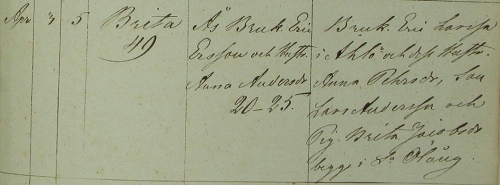 Apr 3 5 Brita 49
Ås Bruk. Eric
Ersson och Hustr.
Anna Andersdr
20-25.
Bruk. Eric Larsson
i Ahlö och dess Hustr.
Anna Pehrsdr,
Lars Andersson och
Pig. Brita Jacobsdr
begge i